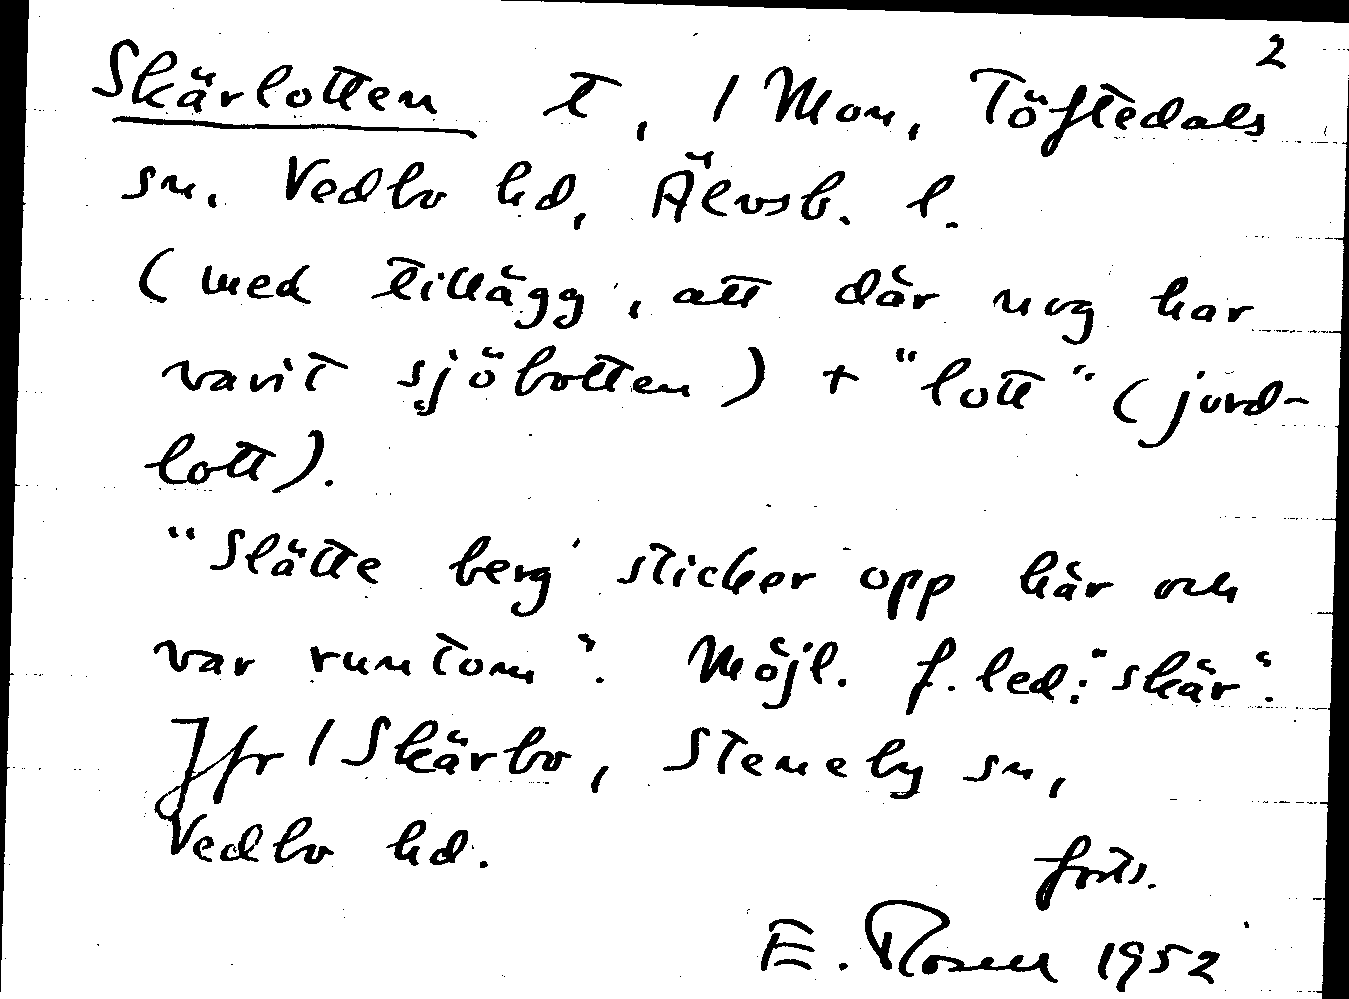 2
Skärlotten t, / Mon, Töftedals
sn. Vedbo hd, Älvsb. l.
(med tillägg, att där nog har
varit sjöbotten) + "lott" (jord-
lott).
"Slätte berg sticker opp här och
var runtom". Möjl. f. led: "skär".
Jfr / Skärbo, Steneby sn,
Vedbo hd.
forts.
E. Rosell 1952